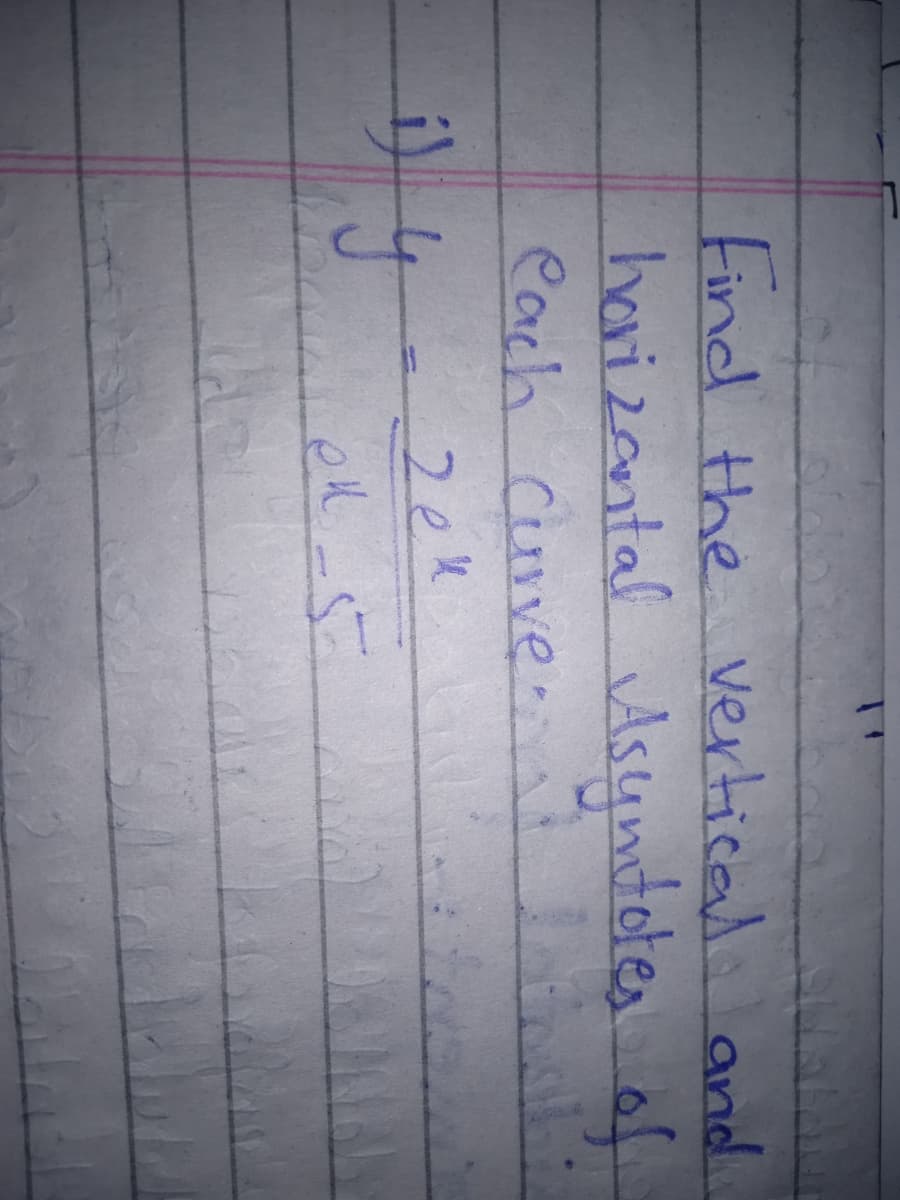 Find the vertical and
horizantal Asymtotes of
each curve.
i) y = 2e^x / e^x - 5